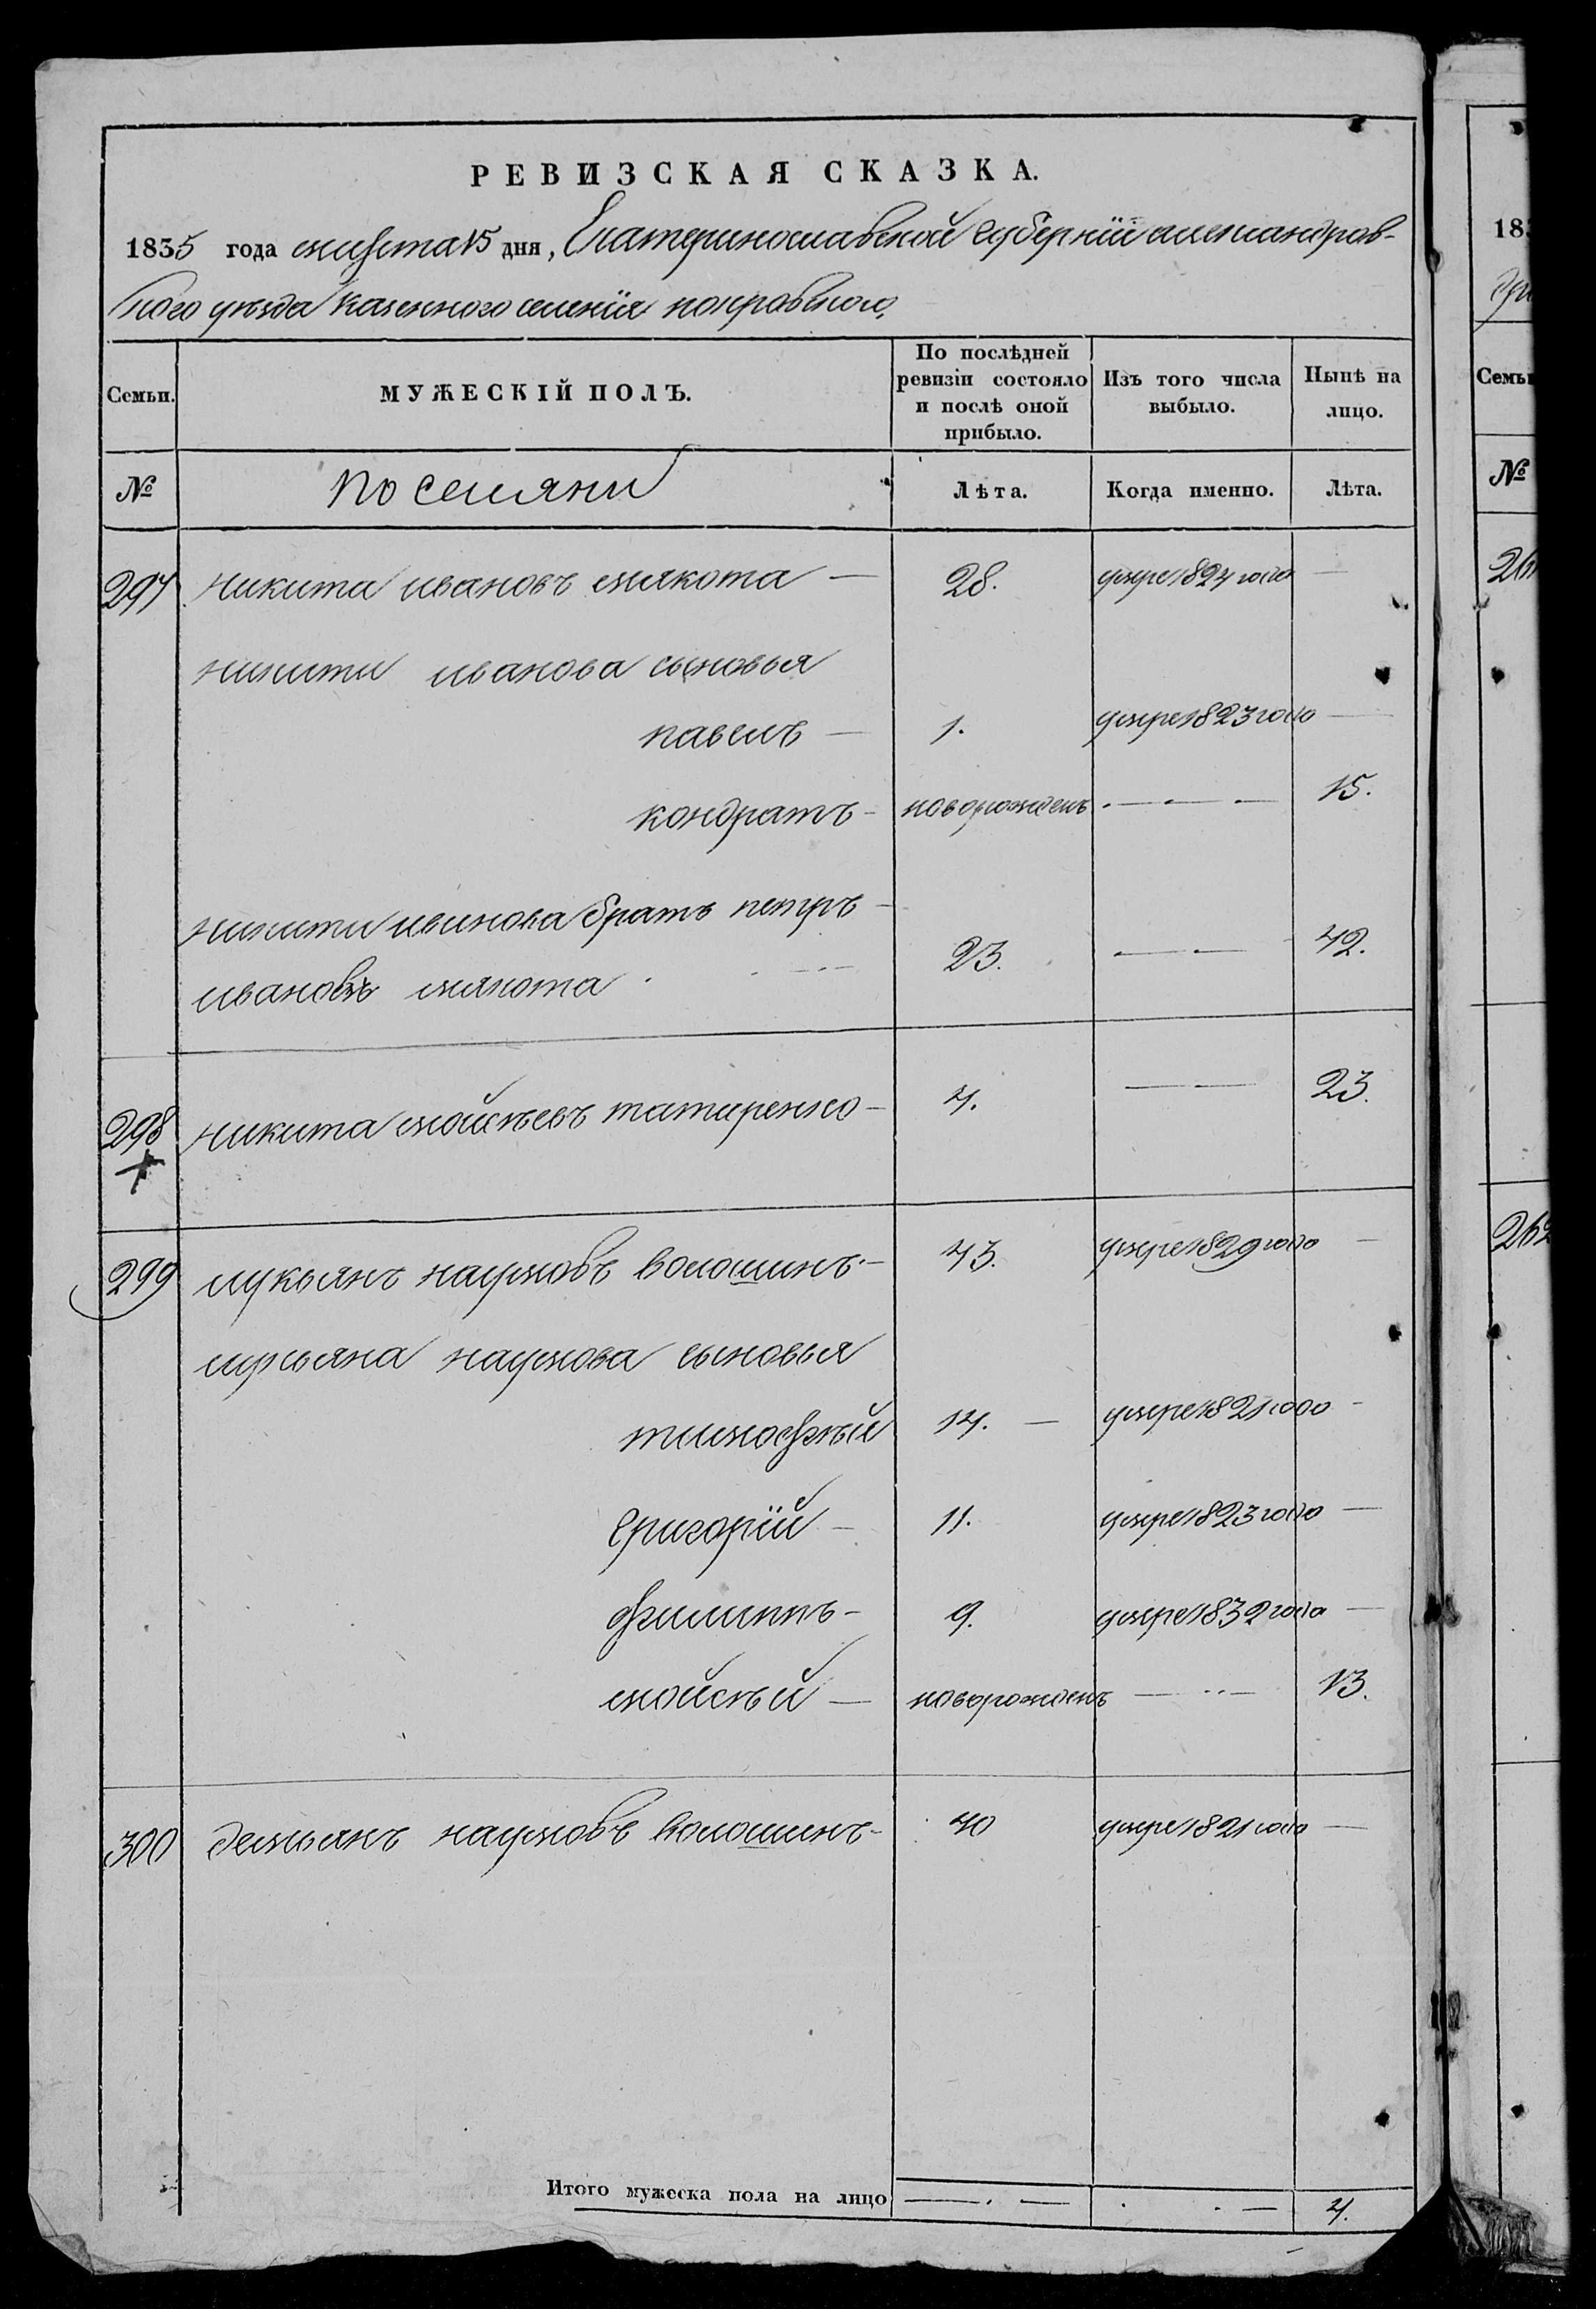 РЕВИЗСКАЯ СКАЗКА.
1835 года августа 15 дня, Екатеринославской губерніи александров-
ского уезда казенного селенія покровского,
Семьи. МУЖЕСКІЙ ПОЛЪ. По послѣдней ревизіи состояло и послѣ оной прибыло. Изъ того числа выбыло. Нынѣ на лицо.
№ поселяни Лѣта. Когда именно. Лѣта.
297 никита ивановъ мякота — 28. умре 1824 года —
никити иванова сыновья
павелъ — 1. умре 1823 года —
кондратъ - новорожденъ — — — 15.
никити иванова братъ петръ -
ивановъ мякота 23. — — 42.
298 никита мойсѣевъ татаренко - 4. — — 23.
299 лукьянъ наумовъ волошинъ - 43. умре 1829 года —
лукьяна наумова сыновья
тимофѣй 14. — умре 1821 года -
григорій — 11. умре 1823 года —
филиппъ - 9. умре 1832 года —
мойсѣй — новорожденъ — — 13.
300 демьянъ наумовъ волошинъ - 40 умре 1821 года —
Итого мужеска пола на лицо — . — . . — 4.
183
Семьи
№